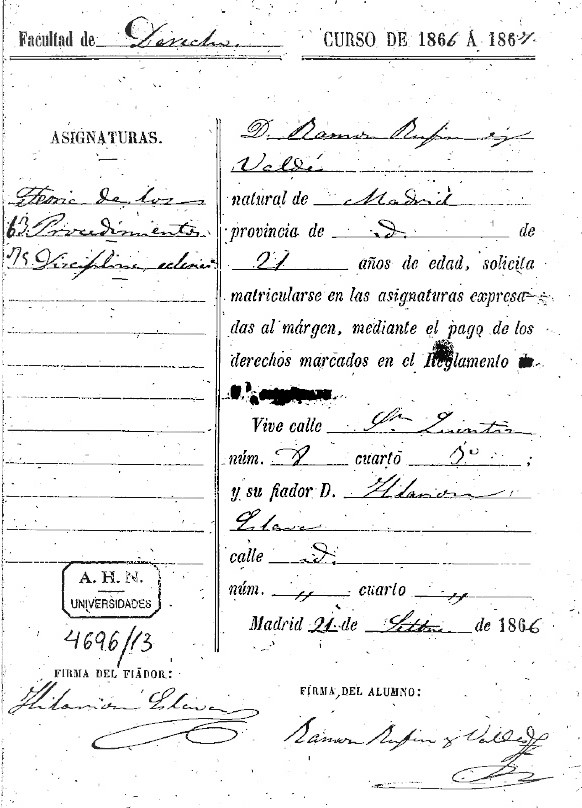 Facultad de Derecho.
CURSO DE 1866 Á 1867.
ASIGNATURAS.
Teoria de los
63 Procedimientos
75 Disciplina ecles
D. Ramon Rufin y
Valdés
natural de Madrid
provincia de id. de
21 años de edad, solicita
matricularse en las asignaturas expresa-
das al márgen, mediante el pago de los
derechos marcados en el Reglamento
Vive calle Sn Quintin
núm. 8 cuarto 3º ;
y su fiador D. Hilarion
Eslava
calle id.
núm. " cuarto "
Madrid 21 de Setbre de 1866
A. H. N.
UNIVERSIDADES
4696/13
FIRMA DEL FIADOR:
Hilarion Eslava
FIRMA DEL ALUMNO:
Ramon Rufin y Valdés